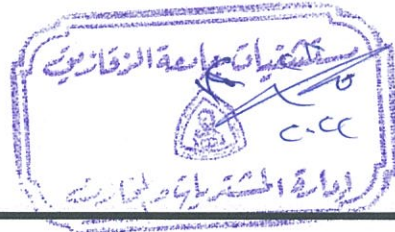 مستشفيات جامعة الزقازيق
٢٠٢٢
إدارة المشتريات والمخازن